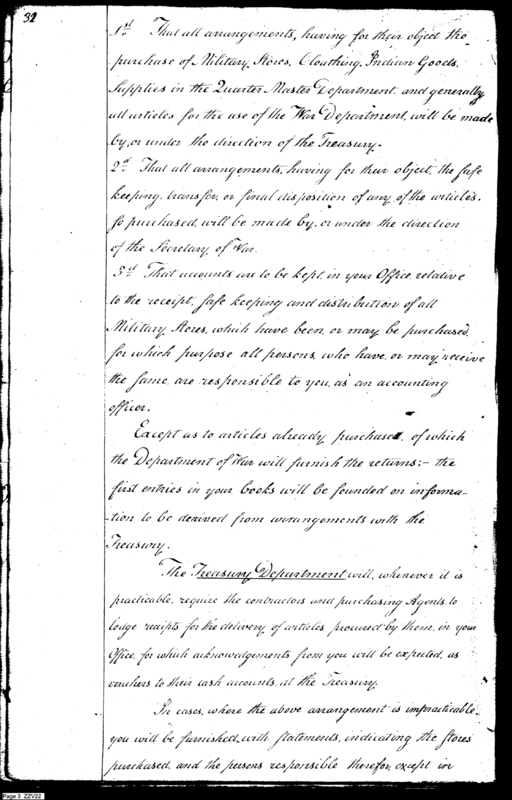 32
1st That all arrangements, having for their object the
purchase of Military Stores, Cloathing, Indian Goods,
Supplies in the Quarter Master Department, and generally
all articles for the use of the War Department, will be made
by, or under the direction of the Treasury.
2d That all arrangements, having for their object, the safe
keeping, transfer, or final disposition of any, of the articles,
so purchased, will be made by, or under the direction
of the Secretary, of War.
3d That accounts are to be kept, in your Office, relative
to the receipt, safe keeping and distribution of all
Military Stores, which have been, or may be purchased,
for which purpose all persons, who have, or may receive
the same, are responsible to you, as an accounting
officer.
Except as to articles already purchased, of which
the Department of War will furnish the returns;- the
first entries in your books will be founded on informa-
-tion to be derived from arrangements with the
Treasury.
The Treasury Department will, whenever it is
practicable, require the contractors and purchasing Agents to
lodge receipts for the delivery of articles procured by them, in your
Office, for which acknowledgements from you will be expected, as
vouchers to their cash accounts, at the Treasury.
In cases, where the above arrangement is impracticable,
you will be furnished, with statements, indicating the stores
purchased, and the persons responsible therefor, except in
Page 3 ZZV22